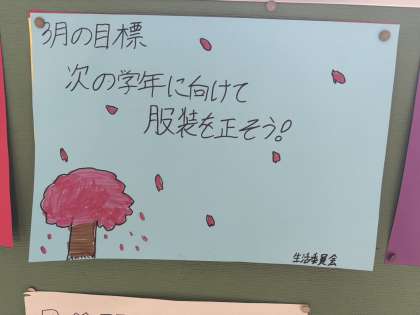 3月の目標
次の学年に向けて
服装を正そう!
生活委員会